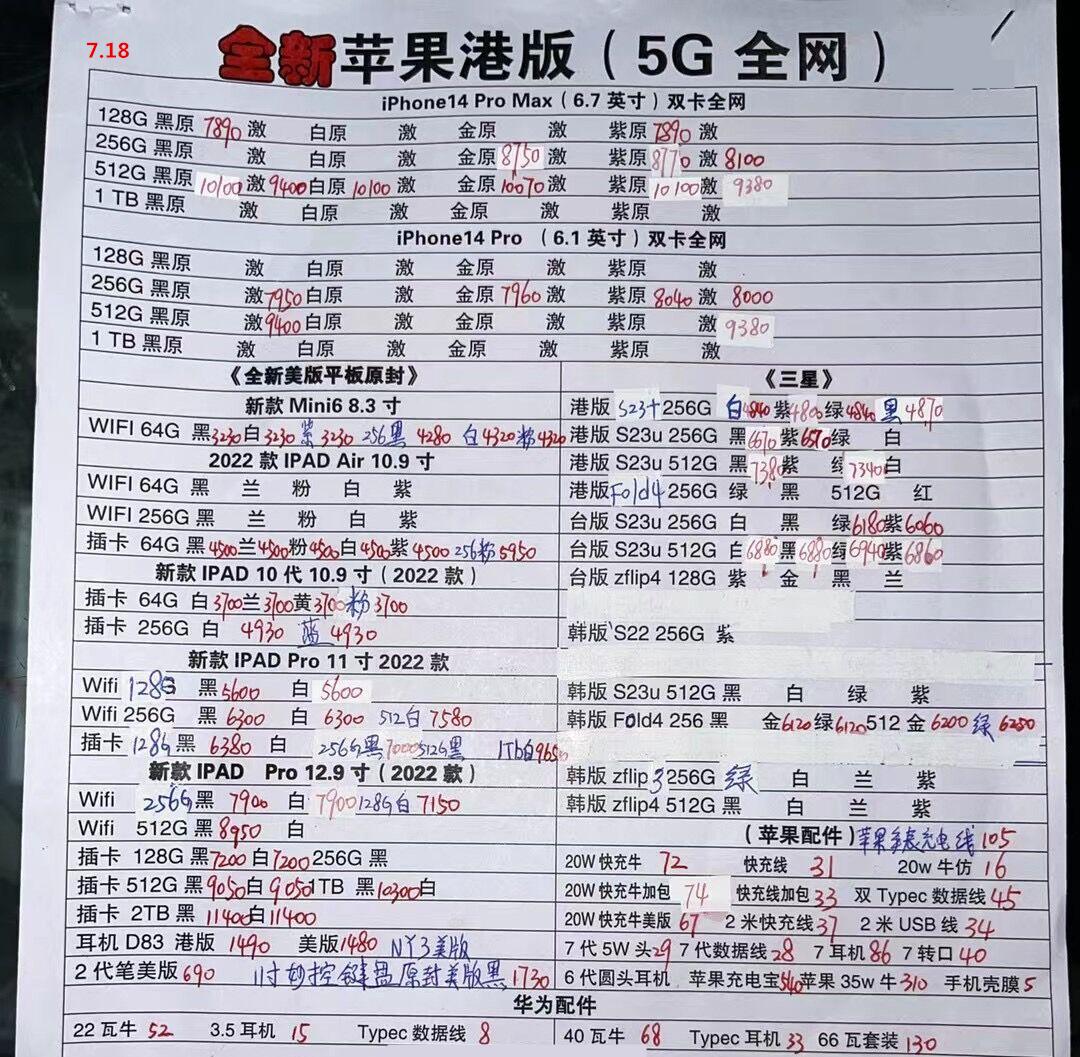 7.18
全新苹果港版（5G 全网）
iPhone14 Pro Max（6.7 英寸）双卡全网
128G 黑原 7890 激 白原 激 金原 激 紫原 7890 激
256G 黑原 激 白原 激 金原 8750 激 紫原 8770 激 8100
512G 黑原 10100 激 9400 白原 10100 激 金原 10070 激 紫原 10100 激 9380
1 TB 黑原 激 白原 激 金原 激 紫原 激
iPhone14 Pro （6.1 英寸）双卡全网
128G 黑原 激 白原 激 金原 激 紫原 激
256G 黑原 激 7950 白原 激 金原 7960 激 紫原 8040 激 8000
512G 黑原 激 9400 白原 激 金原 激 紫原 激 9380
1 TB 黑原 激 白原 激 金原 激 紫原 激
《全新美版平板原封》
新款 Mini6 8.3 寸
WIFI 64G 黑 3230 白 3230 紫 3230 256黑 4280 白 4320 粉 4320
2022 款 IPAD Air 10.9 寸
WIFI 64G 黑 兰 粉 白 紫
WIFI 256G 黑 兰 粉 白 紫
插卡 64G 黑 4500 兰 4500 粉 4500 白 4500 紫 4500 256粉 5950
新款 IPAD 10 代 10.9 寸（2022 款）
插卡 64G 白 3700 兰 3700 黄 3700 粉 3700
插卡 256G 白 4930 蓝 4930
新款 IPAD Pro 11 寸 2022 款
Wifi 128G 黑 5600 白 5600
Wifi 256G 黑 6300 白 6300 512白 7580
插卡 128G 黑 6380 白 256G黑 7000 512G黑 1Tb白 9650
新款 IPAD Pro 12.9 寸（2022 款）
Wifi 256G 黑 7900 白 7900 128G白 7150
Wifi 512G 黑 8950 白
插卡 128G 黑 7200 白 7200 256G 黑
插卡 512G 黑 9050 白 9050 1TB 黑 10300 白
插卡 2TB 黑 11400 白 11400
耳机 D83 港版 1490 美版 1480 NY3美版
2 代笔美版 690 11寸妙控键盘原封美版黑 1730
《三星》
港版 S23+ 256G 白 4840 紫 4800 绿 4840 黑 4870
港版 S23u 256G 黑 6670 紫 6570 绿 白
港版 S23u 512G 黑 7380 紫 绿 7340 白
港版 Fold4 256G 绿 黑 512G 红
台版 S23u 256G 白 黑 绿 6180 紫 6060
台版 S23u 512G 白 6880 黑 6880 绿 6940 紫 6860
台版 zflip4 128G 紫 金 黑 兰
韩版 S22 256G 紫
韩版 S23u 512G 黑 白 绿 紫
韩版 Fold4 256 黑 金 6120 绿 6120 512 金 6200 绿 6250
韩版 zflip 3 256G 绿 白 兰 紫
韩版 zflip4 512G 黑 白 兰 紫
（苹果配件）苹果手表充电线 105
20W 快充牛 72 快充线 31 20w 牛仿 16
20W 快充牛加包 74 快充线加包 33 双 Typec 数据线 45
20W 快充牛美版 67 2 米快充线 37 2 米 USB 线 34
7 代 5W 头 29 7 代数据线 28 7 耳机 86 7 转口 40
6 代圆头耳机 苹果充电宝 540 苹果 35w 牛 310 手机壳膜 5
华为配件
22 瓦牛 52 3.5 耳机 15 Typec 数据线 8 40 瓦牛 68 Typec 耳机 33 66 瓦套装 130